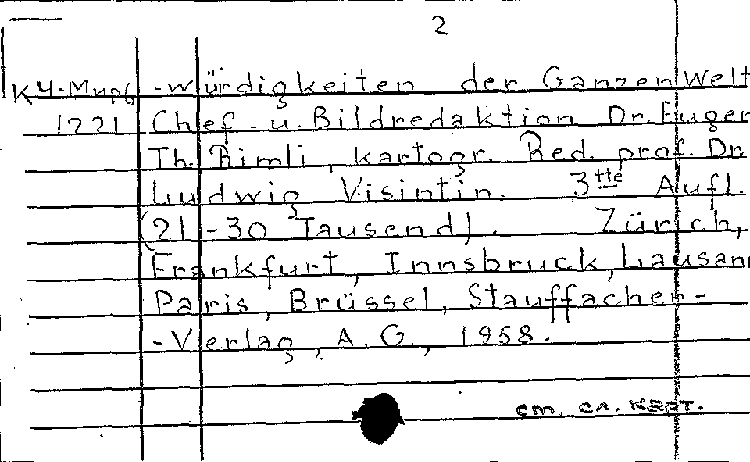 2
-würdigkeiten der Ganzen Welt
1221 Chef- u. Bildredaktion Dr. Euger
Th. Rimli, kartogr. Red. prof. Dr.
Ludwig Visintin. 3tte Aufl.
(21-30 Tausend). Zürich,
Frankfurt, Innsbruck, Lausann
Paris, Brüssel, Stauffacher-
-Verlag, A. G., 1958.
см. сл.